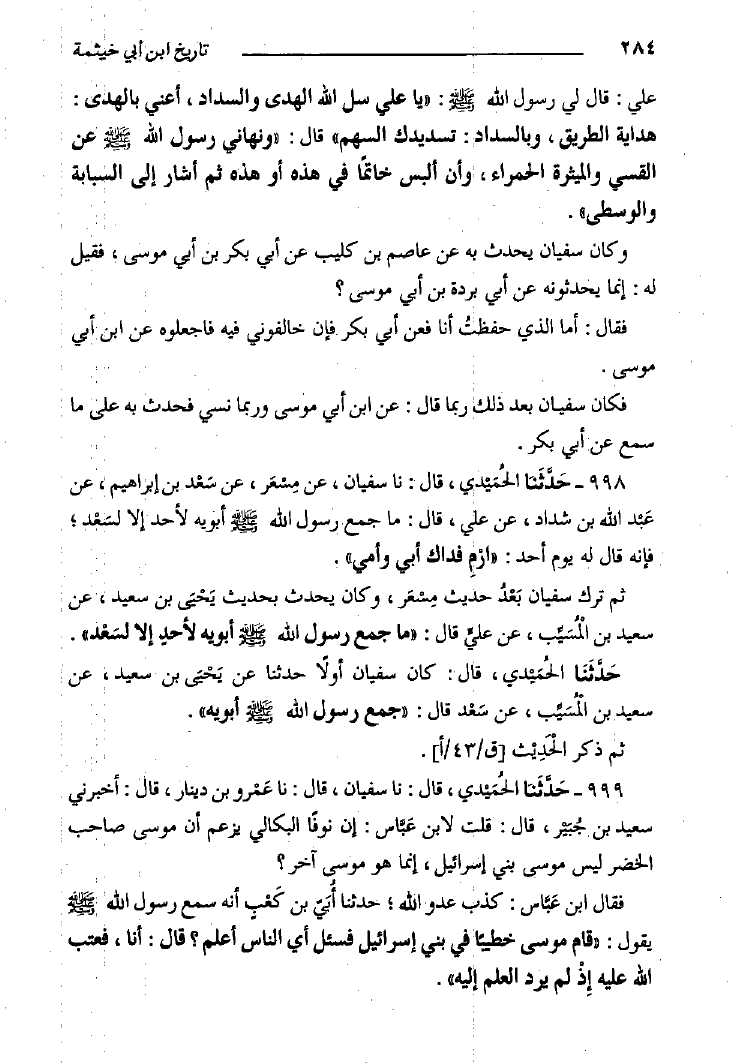 ٢٨٤ تاريخ ابن أبي خيثمة
علي : قال لي رسول الله ﷺ : «يا علي سل الله الهدى والسداد ، أعني بالهدى :
هداية الطريق ، وبالسداد : تسديدك السهم» قال : «ونهاني رسول الله ﷺ عن
القسي والميثرة الحمراء ، وأن ألبس خاتمًا في هذه أو هذه ثم أشار إلى السبابة
والوسطى» .
وكان سفيان يحدث به عن عاصم بن كليب عن أبي بكر بن أبي موسى ، فقيل
له : إنما يحدثونه عن أبي بردة بن أبي موسى ؟
فقال : أما الذي حفظتُ أنا فعن أبي بكر فإن خالفوني فيه فاجعلوه عن ابن أبي
موسى .
فكان سفيان بعد ذلك ربما قال : عن ابن أبي موسى وربما نسي فحدث به على ما
سمع عن أبي بكر .
٩٩٨ ـ حَدَّثَنا الحُمَيْدي ، قال : نا سفيان ، عن مِسْعَر ، عن سَعْد بن إبراهيم ، عن
عَبْد الله بن شداد ، عن علي ، قال : ما جمع رسول الله ﷺ أبويه لأحد إلا لسَعْد ؛
فإنه قال له يوم أحد : «ارْمِ فداك أبي وأمي» .
ثم ترك سفيان بَعْدُ حديث مِسْعَر ، وكان يحدث بحديث يَحْيَى بن سعيد ، عن
سعيد بن الْمُسَيِّب ، عن عليٍّ قال : «ما جمع رسول الله ﷺ أبويه لأحدٍ إلا لسَعْد» .
حَدَّثَنَا الحُمَيْدي ، قال : كان سفيان أولًا حدثنا عن يَحْيَى بن سعيد ، عن
سعيد بن الْمُسَيِّب ، عن سَعْد قال : «جمع رسول الله ﷺ أبويه» .
ثم ذكر الْحَدِيْث [ق/٤٣/أ] .
٩٩٩ ـ حَدَّثَنا الحُمَيْدي ، قال : نا سفيان ، قال : نا عَمْرو بن دينار ، قال : أخبرني
سعيد بن جُبَيْر ، قال : قلت لابن عَبَّاس : إن نوفًا البكالي يزعم أن موسى صاحب
الخضر ليس موسى بني إسرائيل ، إنما هو موسى آخر ؟
فقال ابن عَبَّاس : كذب عدو الله ؛ حدثنا أُبَيّ بن كَعْبٍ أنه سمع رسول الله ﷺ
يقول : «قام موسى خطيبًا في بني إسرائيل فسئل أي الناس أعلم ؟ قال : أنا ، فعتب
الله عليه إذْ لم يرد العلم إليه» .